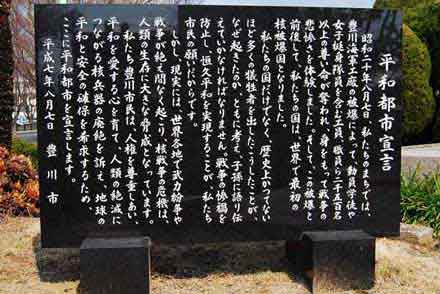 平和都市宣言
昭和二十年八月七日、私たちのまちでは、
豊川海軍工廠の被爆によって、動員学徒や
女子挺身隊員を含む工員、職員ら二千五百名
以上の尊い命が奪われ、身をもって戦争の
悲惨さを体験しました。そして、この被爆と
前後して、私たちの国は、世界で最初の
核被爆国となりました。
私たちの国だけでなく、歴史上かつてない
ほど多くの犠牲者を出したこうしたことが、
なぜ起きたのか、ともに考え、子孫に語り伝
えていかなければなりません。戦争の惨禍を
防止し、恒久平和を実現することが、私たち
市民の願いだからです。
しかし、現実には、世界各地で武力紛争や
戦争が絶え間なく起こり、核戦争の危機は、
人類の生存に大きな脅威となっています。
私たち豊川市民は、人権を尊重しあい、
平和を愛する心を育て、人類の絶滅に
つながる核兵器の廃絶を訴え、地球の
平和と安全の確保を希求するため、
ここに平和都市を宣言します。
平成七年八月七日 豊川市